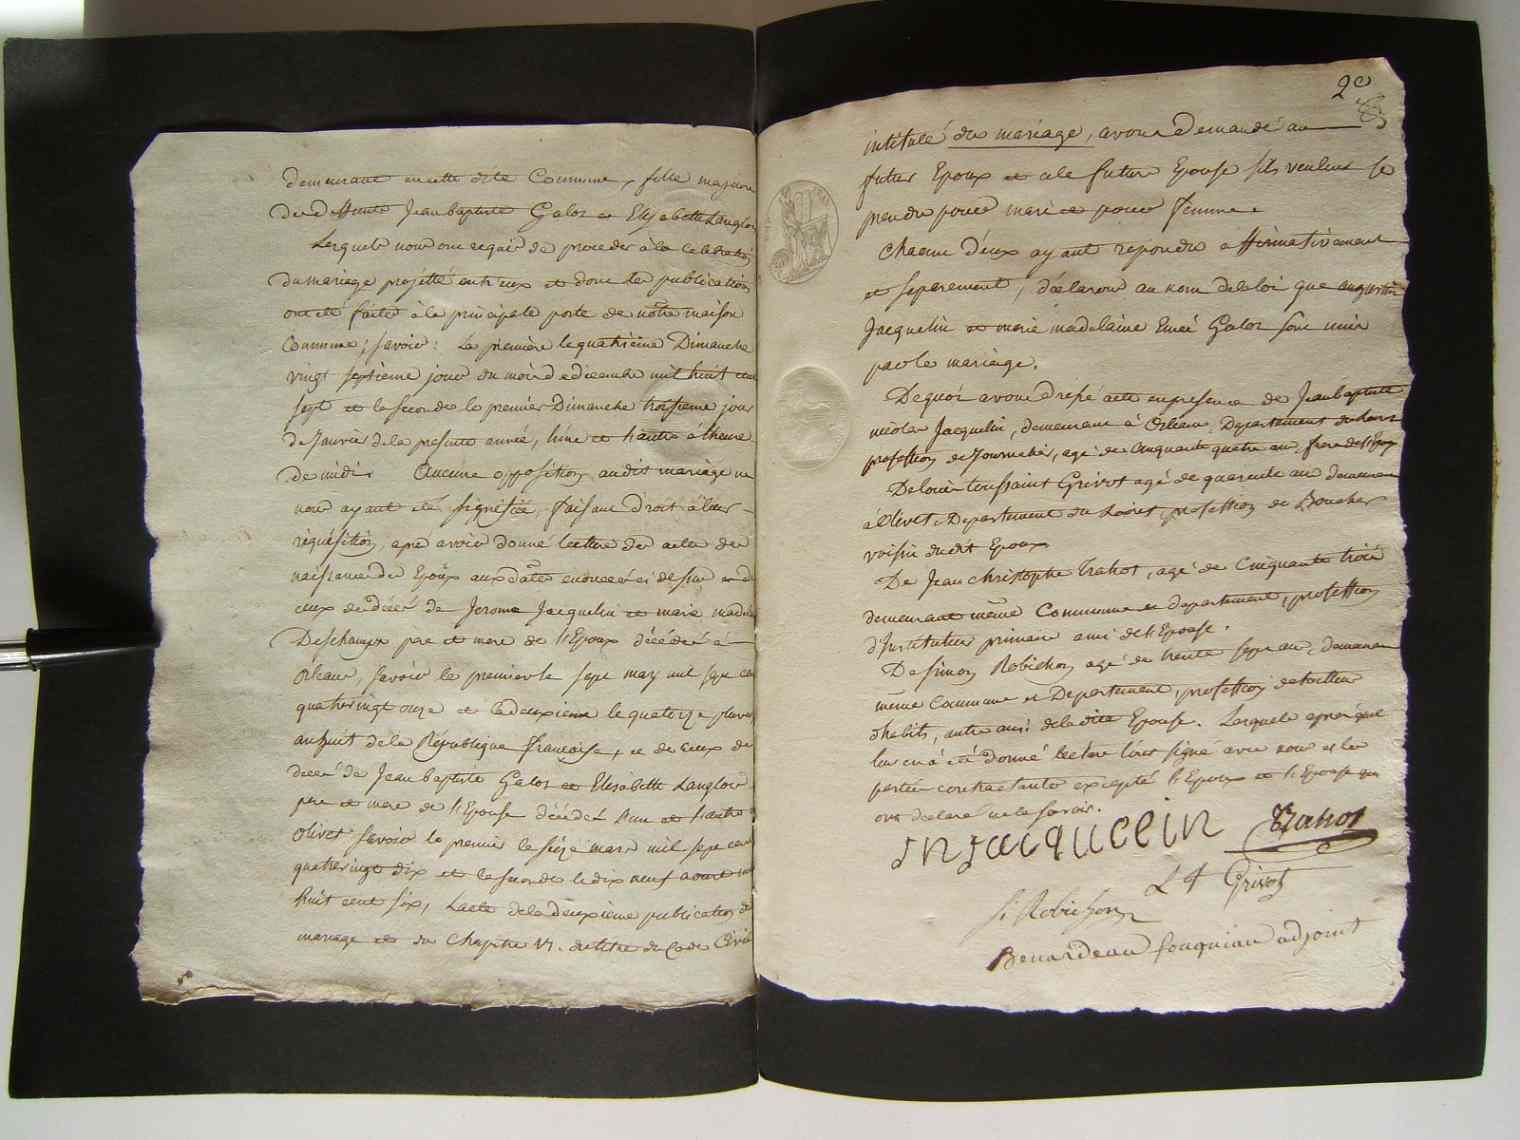 demeurant en cette dite Commune, fille majeure
de deffunts Jean baptiste Galos et Elizabette Langlois
Lesquels nous ont requis de proceder à la Celebration
du mariage projetté entr'eux et dont les publications
ont été faites à la principale porte de nôtre maison
Commune; savoir: La première le quatrième Dimanche
vingt septième jour du mois de decembre mil huit cent
sept et la seconde le premier Dimanche troisieme jour
de Janvier de la presente année, l'une et l'autre à l'heure
de midi. Aucune opposition audit mariage ne
nous ayant été signifiée, faisant droit à leur
réquisition, apres avoir donné lecture des actes de
naissance des Epoux aux dates énoncées ci dessus et
ceux de décés de Jerome Jacquelin et marie
Deschamps pere et mere de l'Epoux décédés à
Orleans, savoir le premier le sept may mil sept cent
quatrevingt onze et la deuxieme le quatorze
an huit de la République françoise, et de ceux de
décés de Jean baptiste Galos et Elisabette Langlois
pere et mere de l'Epouse décédés l'un et l'autre
Olivet savoir le premier le seize mars mil sept cent
quatrevingt dix et la seconde le dix neuf aout
huit cent six, L'acte de la deuxieme publication de
mariage et du Chapitre VI. du titre du Code Civil
2e
intitulé du mariage, avons demandé au
futur Epoux et a la future Epouse s'ils veulent se
prendre pour mari et pour femme.
Chacun d'eux ayant répondu affirmativement
et séparement, déclarons au nom de la loi que augustin
Jacquelin et marie madelaine Emée Galos sont unis
par le mariage.
De quoi avons dressé acte en presence de Jean baptiste
nicolas Jacquelin, demeurant à Orleans, Departement du Loiret
profession de Journalier, agé de Cinquante quatre ans, frere de l'Epoux
De louis toussaint Grivot agé de quarente ans demeurant
à Olivet Departement du Loiret, profession de Boucher
voisin dudit Epoux
De Jean christophe Trahot, agé de Cinquante trois
demeurant même Commune et departement, profession
d'Instituteur primaire ami de l'Epouse.
De simon Robichon agé de trente sept ans, demeurant
même Commune et Departement, profession de tailleur
d'habits, autre ami de la dite Epouse. Lesquels après qu'il
leur en a été donné lecture l'ont signé avec nous et les
parties contractantes excepté l'Epoux et l'Epouse qui
ont declaré ne le savoir.
jnjacquelin Trahot
L t Grivot
S. Robichon
Benardeau fouqueau adjoint